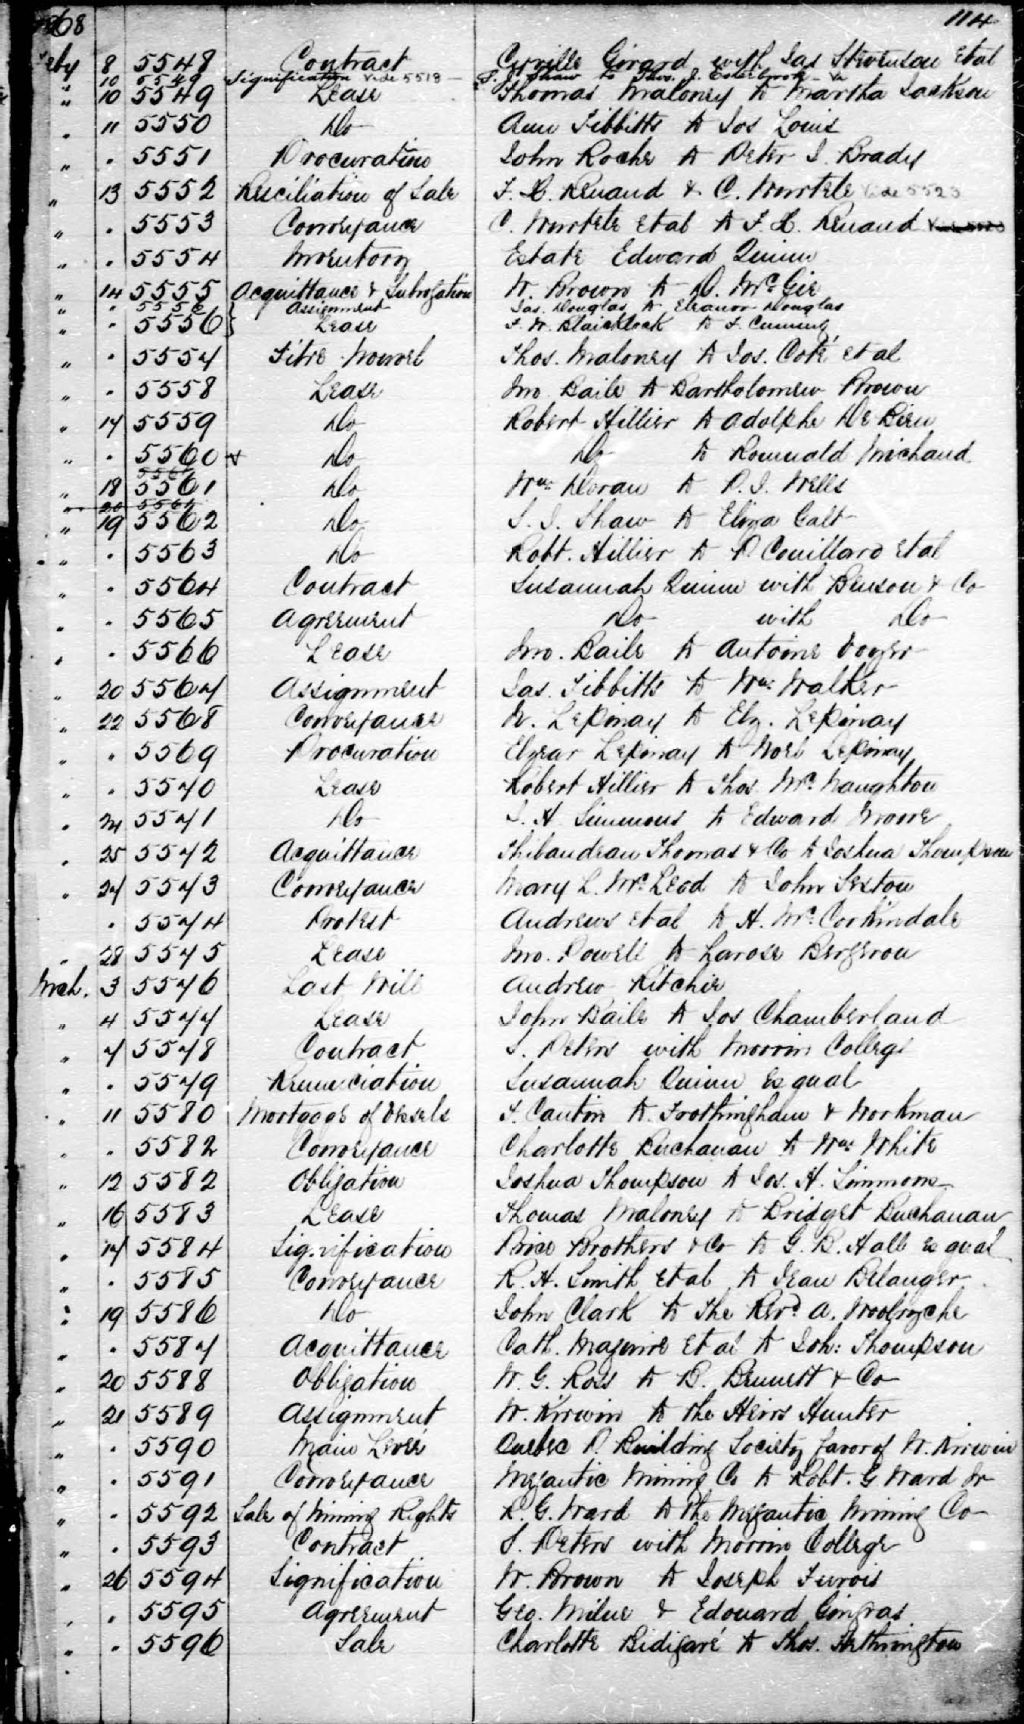 1868 114
Feby 8 5548 Contract Cyrille Girard with Jas Stevenson Et al
10 5549 Signification Vide 5518 - S. J. Shaw to
" 10 5549 Lease Thomas Maloney to Martha Jackson
" 11 5550 Do Ann Tibbitts to Jos Louis
" " 5551 Procuration John Roche to Peter J. Brady
" 13 5552 Resciliation of Sale F. X. Renaud & C. Wurtele Vide 5523
" " 5553 Conveyance C. Wurtele et al to F. X. Renaud
" " 5554 Inventory Estate Edward Quinn
" 14 5555 Acquittance & Subrogation W. Brown to D. McGie
" " 5556 Assignment Jas. Douglas to Eleanor Douglas
" " 5556 Lease F. W. Blaicklock to F. Cumming
" " 5557 Titre Nouvel Thos. Maloney to Jos. Coté et al
" " 5558 Lease Jno. Baile to Bartholomew Brown
" 17 5559 Do Robert Hillier to Adolphe De Bien
" " 5560 Do Do to Romuald Michaud
" 18 5561 Do Wm Doran to P. J. Wells
" 19 5562 Do S. J. Shaw to Eliza Galt
" " 5563 Do Robt. Hillier to P Couillard et al
" " 5564 Contract Susannah Quinn with Benson & Co
" " 5565 Agreement Do with Do
" " 5566 Lease Jno. Baile to Antoine Voyer
" 20 5567 Assignment Jas. Tibbitts to Wm Walker
" 22 5568 Conveyance N. Lepinay to Elz. Lepinay
" " 5569 Procuration Elzear Lepinay to Noel Lepinay
" " 5570 Lease Robert Hillier to Thos. McNaughton
" 24 5571 Do J. H. Simmons to Edward Moore
" 25 5572 Acquittance Thibaudeau Thomas & Co to Joshua Thompson
" 27 5573 Conveyance Mary L. McLeod to John
" 5574 Protest Andrews et al to H. McCorkindale
" 28 5575 Lease Jno. Powell to Larose Bergeron
Mch. 3 5576 Last Will Andrew Ritchie
" 4 5577 Lease John Baile to Jos Chamberland
" 7 5578 Contract S. Peters with Morrin College
" " 5579 Renunciation Susannah Quinn Es qual
" 11 5580 Mortgage of Vessels F. Cantin to Frothingham & Workman
" " 5582 Conveyance Charlotte Buchanan to Wm White
" 12 5582 Obligation Joshua Thompson to Jos. H. Simmons
" 16 5583 Lease Thomas Maloney to Bridget Buchanan
" 17 5584 Signification Price Brothers & Co to G. B. Hall es qual
" " 5585 Conveyance R. H. Smith et al to Jean Belanger
" 19 5586 Do John Clark to the Revd A. Woolryche
" " 5587 Acquittance Cath. Maguire et al to Joh: Thompson
" 20 5588 Obligation W. G. Ross to B. Bennett & Co
" 21 5589 Assignment W. Kirwin to the Heirs Hunter
" " 5590 Main Levée Quebec P. Building Society favor of W. Kirwin
" " 5591 Conveyance Megantic Mining Co to Robt. G Ward Jr
" " 5592 Sale of Mining Rights R. G. Ward to the Megantic Mining Co
" " 5593 Contract S. Peters with Morrin College
" 26 5594 Signification W. Brown to Joseph
" " 5595 Agreement Geo. Milne & Edouard Gingras
" " 5596 Sale Charlotte Bidigaré to Thos. Hethrington